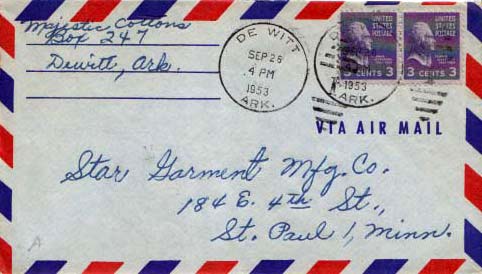 Majestic Cottons
Box 247
Dewitt, Ark.
DE WITT
SEP 26
4 PM
1953
ARK.
1953
ARK.
UNITED STATES POSTAGE
3 CENTS 3
UNITED STATES POSTAGE
3 CENTS 3
VIA AIR MAIL
Star Garment Mfg. Co.
184 E. 4th St.,
St. Paul 1, Minn.
A